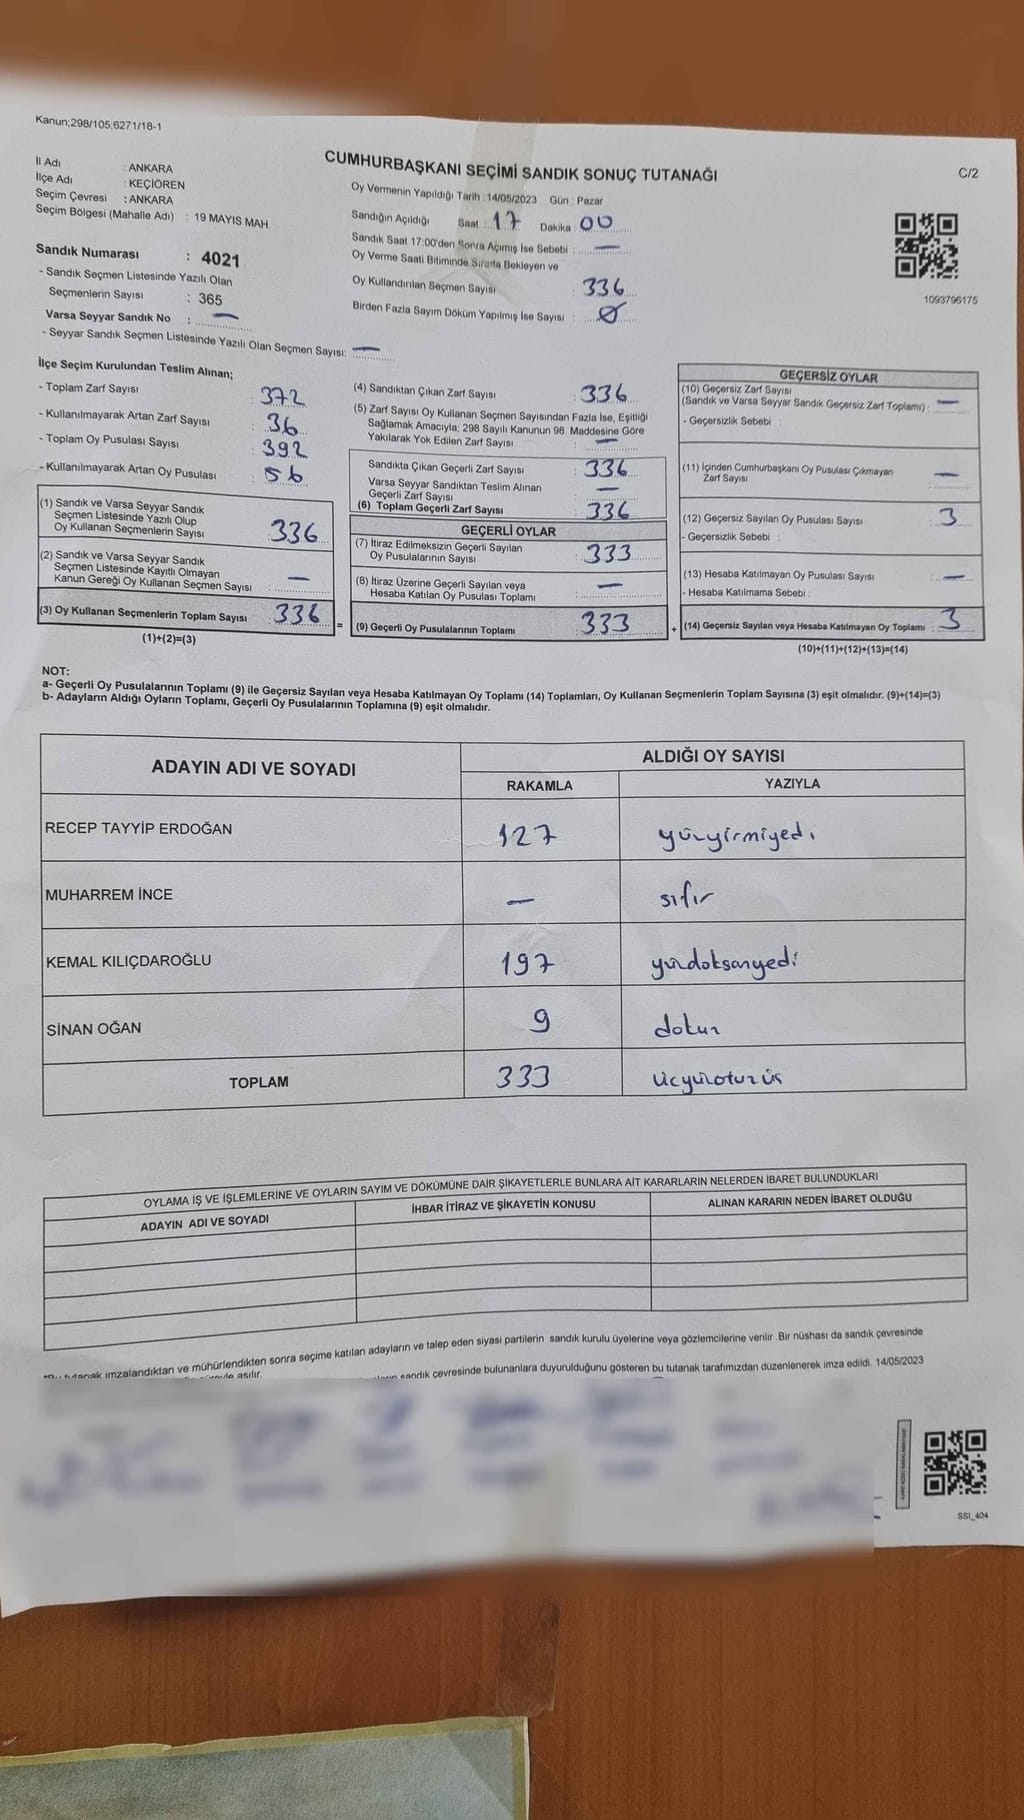 Kanun;298/105;6271/18-1
CUMHURBAŞKANI SEÇİMİ SANDIK SONUÇ TUTANAĞI
C/2
İl Adı : ANKARA
İlçe Adı : KEÇİÖREN
Seçim Çevresi : ANKARA
Seçim Bölgesi (Mahalle Adı) : 19 MAYIS MAH
Oy Vermenin Yapıldığı Tarih : 14/05/2023 Gün : Pazar
Sandığın Açıldığı Saat : 17 Dakika : 00
Sandık Saat 17:00'den Sonra Açımış İse Sebebi : —
Oy Verme Saati Bitiminde Sırada Bekleyen ve
Oy Kullandırılan Seçmen Sayısı : 336
Birden Fazla Sayım Döküm Yapılmış İse Sayısı : Ø
1093796175
Sandık Numarası : 4021
- Sandık Seçmen Listesinde Yazılı Olan
Seçmenlerin Sayısı : 365
Varsa Seyyar Sandık No : —
- Seyyar Sandık Seçmen Listesinde Yazılı Olan Seçmen Sayısı: —
İlçe Seçim Kurulundan Teslim Alınan;
- Toplam Zarf Sayısı : 372
- Kullanılmayarak Artan Zarf Sayısı : 36
- Toplam Oy Pusulası Sayısı : 392
- Kullanılmayarak Artan Oy Pusulası : 56
(1) Sandık ve Varsa Seyyar Sandık
Seçmen Listesinde Yazılı Olup
Oy Kullanan Seçmenlerin Sayısı : 336
(2) Sandık ve Varsa Seyyar Sandık
Seçmen Listesinde Kayıtlı Olmayan
Kanun Gereği Oy Kullanan Seçmen Sayısı : —
(3) Oy Kullanan Seçmenlerin Toplam Sayısı : 336
(1)+(2)=(3)
=
(4) Sandıktan Çıkan Zarf Sayısı : 336
(5) Zarf Sayısı Oy Kullanan Seçmen Sayısından Fazla İse, Eşitliği
Sağlamak Amacıyla; 298 Sayılı Kanunun 98. Maddesine Göre
Yakılarak Yok Edilen Zarf Sayısı : —
Sandıkta Çıkan Geçerli Zarf Sayısı : 336
Varsa Seyyar Sandıktan Teslim Alınan
Geçerli Zarf Sayısı : —
(6) Toplam Geçerli Zarf Sayısı : 336
GEÇERLİ OYLAR
(7) İtiraz Edilmeksizin Geçerli Sayılan
Oy Pusulalarının Sayısı : 333
(8) İtiraz Üzerine Geçerli Sayılan veya
Hesaba Katılan Oy Pusulası Toplamı : —
(9) Geçerli Oy Pusulalarının Toplamı : 333
+
GEÇERSİZ OYLAR
(10) Geçersiz Zarf Sayısı
(Sandık ve Varsa Seyyar Sandık Geçersiz Zarf Toplamı) : —
- Geçersizlik Sebebi :
(11) İçinden Cumhurbaşkanı Oy Pusulası Çıkmayan
Zarf Sayısı : —
(12) Geçersiz Sayılan Oy Pusulası Sayısı : 3
- Geçersizlik Sebebi :
(13) Hesaba Katılmayan Oy Pusulası Sayısı : —
- Hesaba Katılmama Sebebi :
(14) Geçersiz Sayılan veya Hesaba Katılmayan Oy Toplamı : 3
(10)+(11)+(12)+(13)=(14)
NOT:
a- Geçerli Oy Pusulalarının Toplamı (9) ile Geçersiz Sayılan veya Hesaba Katılmayan Oy Toplamı (14) Toplamları, Oy Kullanan Seçmenlerin Toplam Sayısına (3) eşit olmalıdır. (9)+(14)=(3)
b- Adayların Aldığı Oyların Toplamı, Geçerli Oy Pusulalarının Toplamına (9) eşit olmalıdır.
ADAYIN ADI VE SOYADI ALDIĞI OY SAYISI
RAKAMLA YAZIYLA
RECEP TAYYİP ERDOĞAN 127 yüzyirmiyedi
MUHARREM İNCE — sıfır
KEMAL KILIÇDAROĞLU 197 yüzdoksanyedi
SİNAN OĞAN 9 dokuz
TOPLAM 333 üçyüzotuzüç
OYLAMA İŞ VE İŞLEMLERİNE VE OYLARIN SAYIM VE DÖKÜMÜNE DAİR ŞİKAYETLERLE BUNLARA AİT KARARLARIN NELERDEN İBARET BULUNDUKLARI
ADAYIN ADI VE SOYADI İHBAR İTİRAZ VE ŞİKAYETİN KONUSU ALINAN KARARIN NEDEN İBARET OLDUĞU
*Bu tutanak imzalandıktan ve mühürlendikten sonra seçime katılan adayların ve talep eden siyasi partilerin sandık kurulu üyelerine veya gözlemcilerine verilir .Bir nüshası da sandık çevresinde
asılır. sandık çevresinde bulunanlara duyurulduğunu gösteren bu tutanak tarafımızdan düzenlenerek imza edildi. 14/05/2023
SSI_404